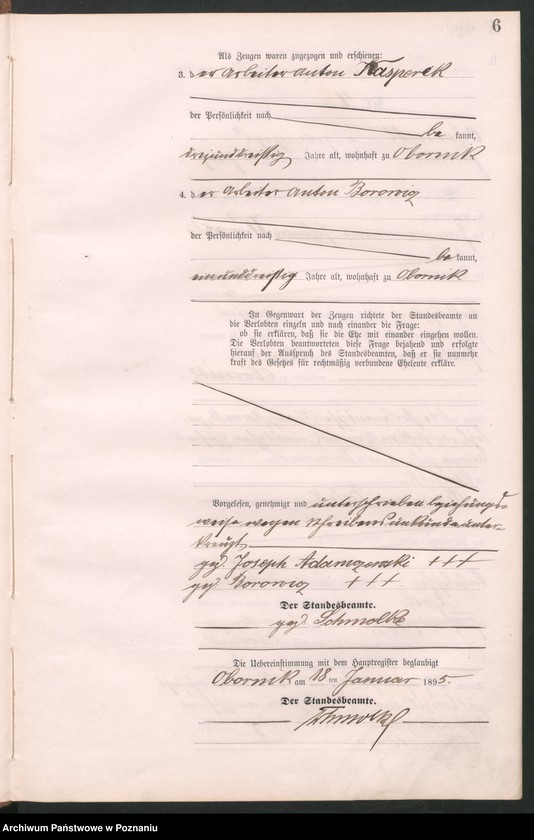 6
Als Zeugen waren zugezogen und erschienen:
3. der Arbeiter Anton Kasperek
der Persönlichkeit nach
be kannt,
dreiunddreißig Jahre alt, wohnhaft zu Obornik
4. der Arbeiter Anton Borowicz
der Persönlichkeit nach
be kannt,
einunddreißig Jahre alt, wohnhaft zu Obornik
In Gegenwart der Zeugen richtete der Standesbeamte an
die Verlobten einzeln und nach einander die Frage:
ob sie erklären, daß sie die Ehe mit einander eingehen wollen.
Die Verlobten beantworteten diese Frage bejahend und erfolgte
hierauf der Ausspruch des Standesbeamten, daß er sie nunmehr
kraft des Gesetzes für rechtmäßig verbundene Eheleute erkläre.
Vorgelesen, genehmigt und unterschrieben beziehungs-
weise wegen Schreibensunkunde unter-
kreuzt
gez. Joseph Adamczewski +++
gez. Borowicz +++
Der Standesbeamte.
gez. Schmolke
Die Uebereinstimmung mit dem Hauptregister beglaubigt
Obornik am 18 ten Januar 1895.
Der Standesbeamte.
Schmolke
Archiwum Państwowe w Poznaniu